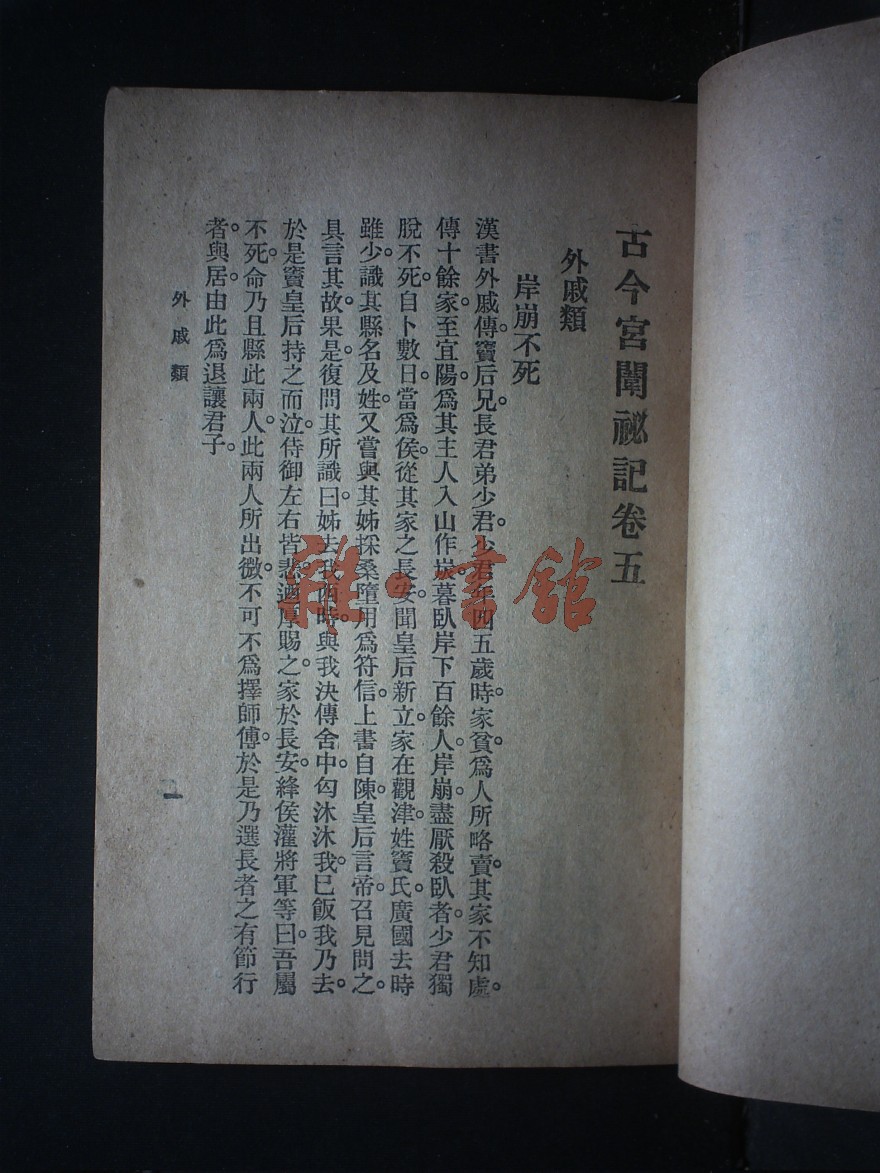 古今宮闈祕記卷五
外戚類
岸崩不死
漢書外戚傳。竇后兄長君。弟少君。少君年四五歲時。家貧。爲人所略賣。其家不知處。
傳十餘家。至宜陽。爲其主人入山作炭。暮臥岸下百餘人。岸崩。盡厭殺臥者。少君獨
脫不死。自卜數日當爲侯。從其家之長安。聞皇后新立。家在觀津。姓竇氏。廣國去時
雖少。識其縣名及姓。又嘗與其姊採桑墮。用爲符信。上書自陳。皇后言帝。召見問之。
具言其故。果是。復問其所識。曰姊去我西時。與我決傳舍中。匄沐沐我。已飯我。乃去。
於是竇皇后持之而泣。侍御左右皆悲。迺厚賜之。家於長安。絳侯灌將軍等曰。吾屬
不死。命乃且縣此兩人。此兩人所出微。不可不爲擇師傅。於是乃選長者之有節行
者。與居。由此爲退讓君子。
外戚類
一
雜·書館